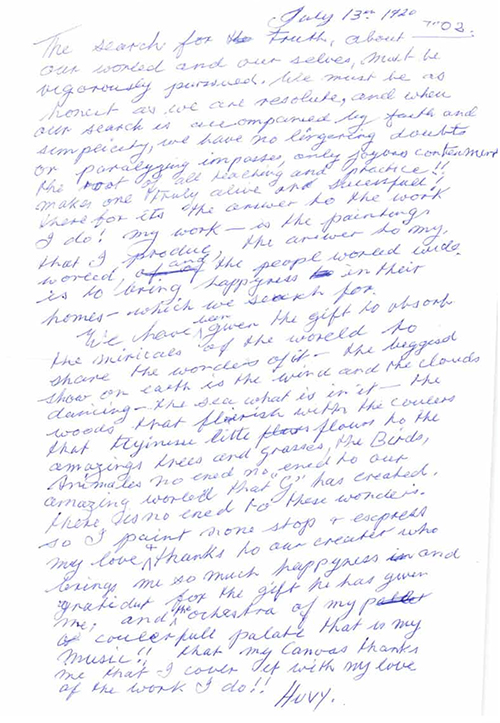 July 13th 1920
"03.
The search for the Truth, about
our world and our selves, must be
vigorously pursued. We must be as
honest as we are resolute, and when
our search is accompanied by faith and
simplicity, we have no lingering doubts
or paralyzing impasse, only joyous contentment
the root of all teaching and practice!!
makes one truly alive and sucessfull,
there for its the answer to the work
I do! my work – is the paintings
that I produc, the answer to my
woreled, and the people woreled wide.
is to bring happyness to in their
homes – which we search for.
We have been given the gift to absorb
the miricals of the woreld to
share the wonders of it – the biggest
show on earth is the wind and the clouds
dancing – the sea what is in it – the
woods that flurish with the coulers
that tiyinesse little flours to the
amazings trees and grasses, the Birds,
Animales no ened no ened to our
amazing woreled that "G" has created.
there is no ened to these wonders.
so I paint none stop & express
my love & thanks to our creater who
brings me so much happyness in and
gratidut for the gift he has given
me, and the ochestra of my
coulerfull palate that is my
Music!! that my Canvas thanks
me that I cover it with my love
of the work I do!!
HUVY.